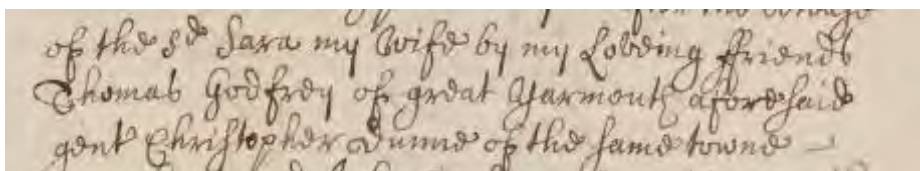 of the sd Sara my Wife by my Loveing ffriends
Thomas Godfrey of great Yarmouth aforesaid
gent Christopher Dunne of the same towne